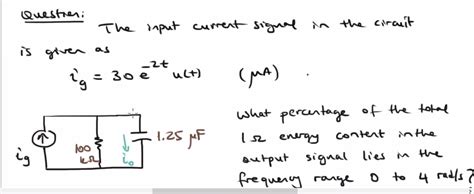 Question:
The input current signal in the circuit
is given as
i_g = 30 e^{-2t} u(t) (μA).
What percentage of the total
1Ω energy content in the
output signal lies in the
frequency range 0 to 4 rad/s?
i_g
100
kΩ
i_o
1.25 μF